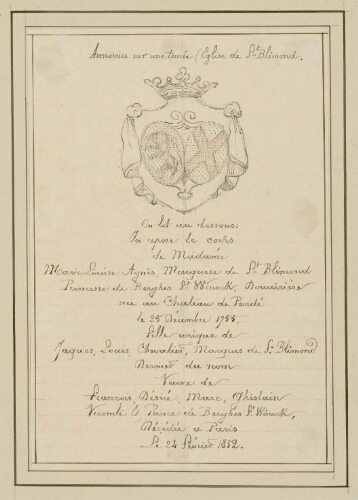 Armoiries sur une tombe (Eglise de St. Blimond.
On lit au dessous:
Ici repose le corps
de Madame
Marie Louise Agnès, Marquise de St. Blimond
Princesse de Berghes St. Winock, Douairière
née au Château de Pendé
le 25 Décembre 1755,
fille unique de
Jaques, Louis Chevalier, Marquis de St. Blimond
Dernier du nom
Veuve de
François Désiré, Marc, Ghislain
Vicomte & Prince de Berghes St. Winock,
Décédée a Paris
Le 24 février 1832.